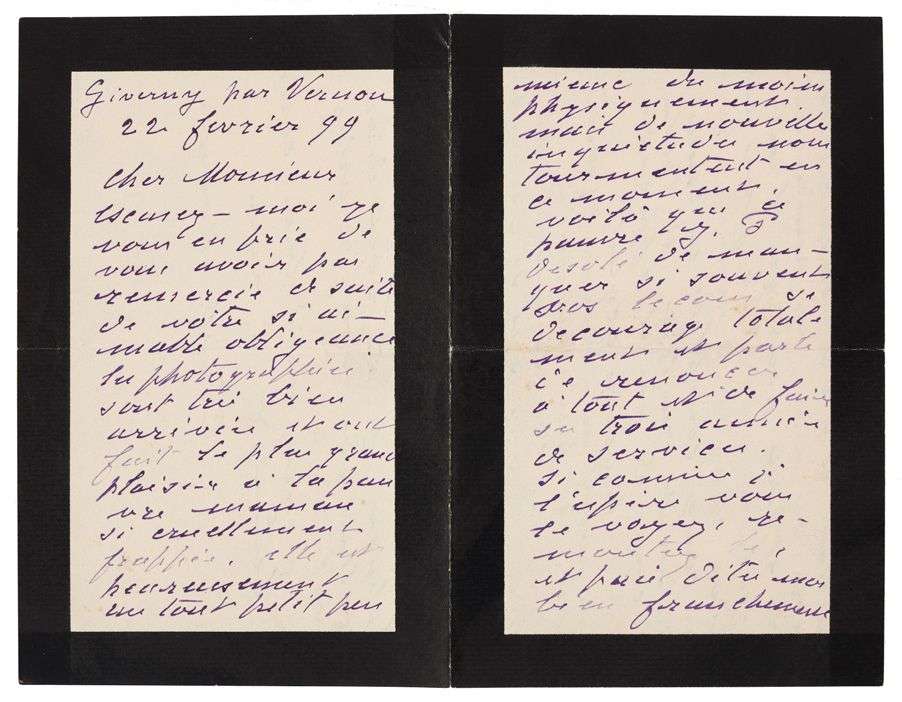 Giverny par Vernon
22 fevrier 99
Cher Monsieur
Escusez-moi je
vous en prie de
vous avoir pas
remercié de suite
de votre si ai-
mable obligeance
les photographies
sont très bien
arrivées et ont
fait le plus grand
plaisir à la pau
vre maman
si cruellement
frappée. elle est
heureusement
un tout petit peu
mieux du moins
physiquement
mais de nouvelles
inquietudes nous
tourmentent en
ce moment.
voilà que ce
pauvre
desolé de man-
quer si souvent
ses leçons se
decourage totale
ment et parle
de renoncer
à tout et de faire
ses trois années
de service.
si comme je
l'espère vous
le voyez, re-
montez le,
et puis dites moi
bien franchement